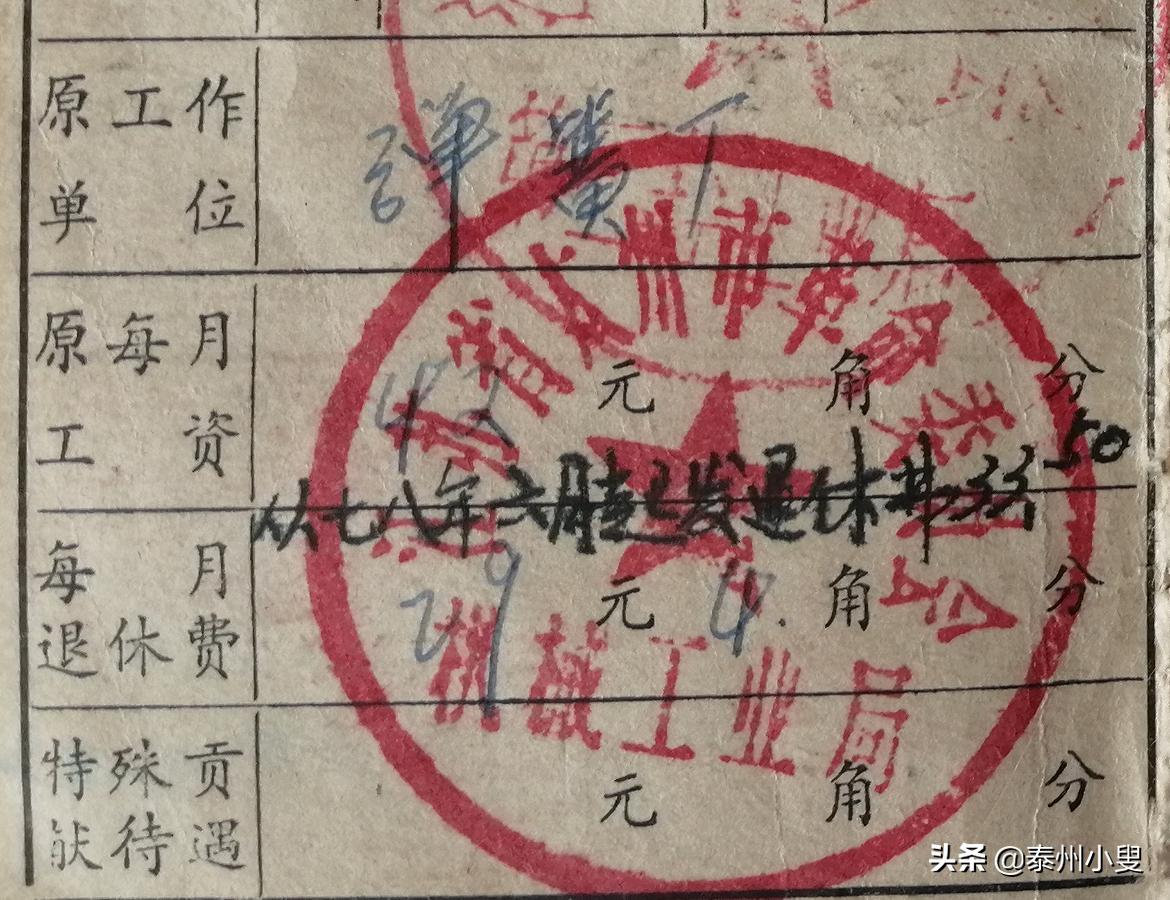 原工作
单位
弹簧厂
原每月
工资
42 元 角 分
从七八年六月起已发退休费33.50
每月
退休费
29 元 4 角 分
特殊贡
献待遇
元 角 分
泰州市革命委员会
机械工业局
头条 @泰州小叟